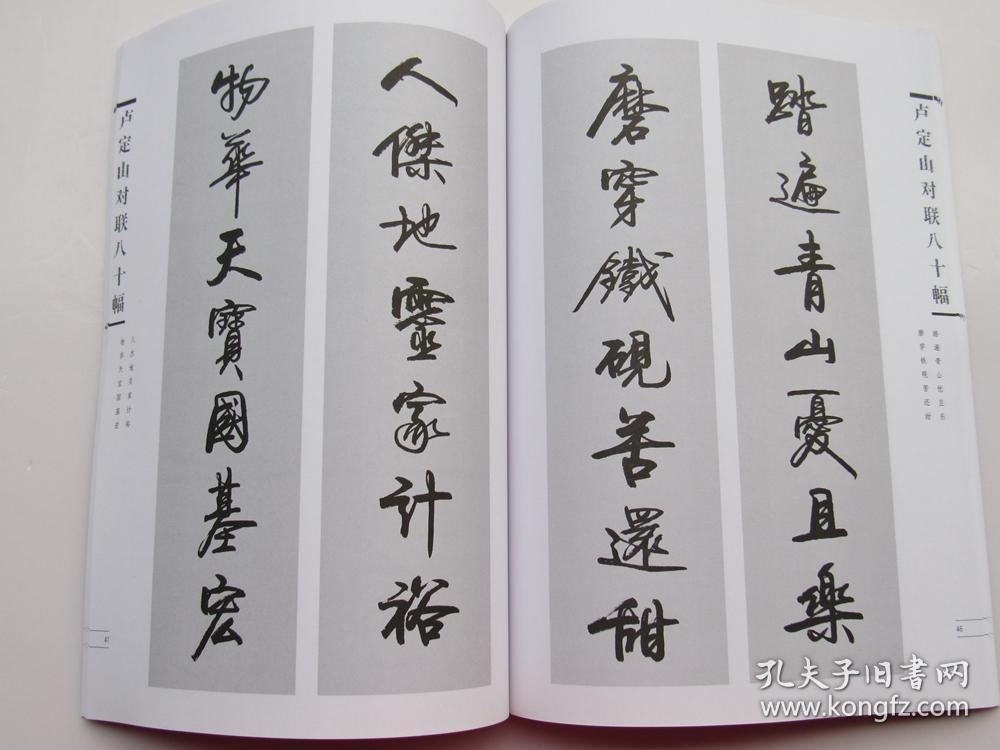 卢定山对联八十幅
踏遍青山忧且乐
磨穿铁砚苦还甜
踏遍青山憂且樂
磨穿鐵硯苦還甜
46
人傑地靈家計裕
物華天寶國基宏
卢定山对联八十幅
人杰地灵家计裕
物华天宝国基宏
47
孔夫子旧書网
www.kongfz.com